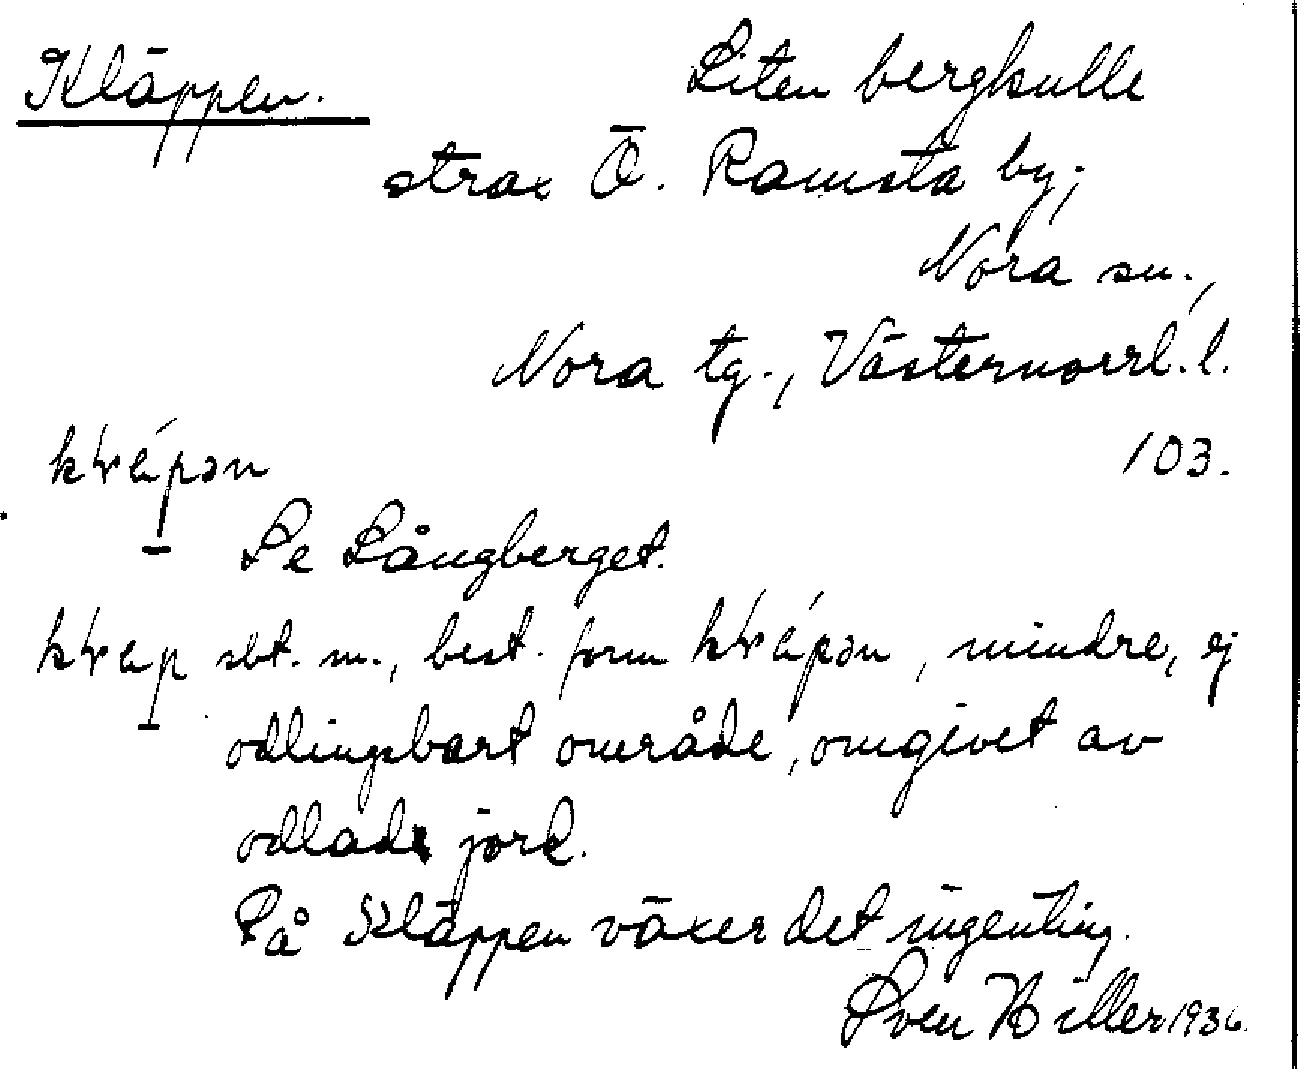 Kläppen.
Liten bergkulle
strax Ö. Ramsta by;
Nora sn.,
Nora tg., Västernorrl. l.
103.
Se Långberget.
sbt. m., best. form, mindre, ej
odlingsbart område, omgivet av
odlad jord.
På Kläppen växer det ingenting.
Sven Hiller 1936.